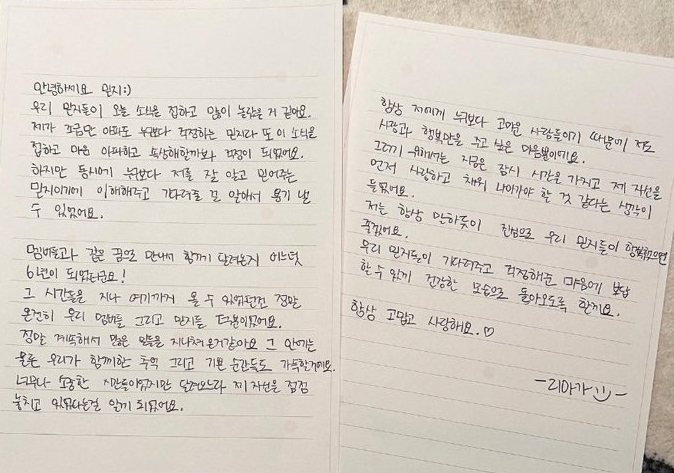 안녕하세요 믿지:)
우리 믿지들이 오늘 소식을 접하고 많이 놀랐을 거 같아요.
제가 조금만 아파도 누구보다 걱정하는 믿지라 또 이 소식을
접하고 마음 아파하고 속상해할까봐 걱정이 되었어요.
하지만 동시에 누구보다 저를 잘 알고 믿어주는
믿지이기에 이해해주고 기다려줄 걸 알아서 용기 낼
수 있었어요.
멤버들과 같은 꿈으로 만나서 함께 달려온지 어느덧
6년이 되었더라구요!
그 시간들을 지나 여기까지 올 수 있었던건 정말
온전히 우리 멤버들 그리고 믿지들 덕분이었어요.
정말 계속해서 많은 일들을 지나쳐온거같아요 그 안에는
물론 우리가 함께한 추억 그리고 기쁜 순간들도 가득한거에요.
너무나 소중한 시간들이었지만 달려오느라 제 자신을 점점
놓치고 있었다는걸 알게 되었어요.
항상 저에게 누구보다 고마운 사람들이기 때문에 저도
사랑과 행복만을 주고 싶은 마음뿐이에요.
그러기 위해서는 지금은 잠시 시간을 가지고 제 자신을
먼저 사랑하고 채워 나아가야 할 것 같다는 생각이
들었어요.
저는 항상 말하듯이 진심으로 우리 믿지들이 행복했으면
좋겠어요.
우리 믿지들이 기다려주고 걱정해준 마음에 보답
할 수 있게 건강한 모습으로 돌아오도록 할게요.
항상 고맙고 사랑해요.♡
-리아가-